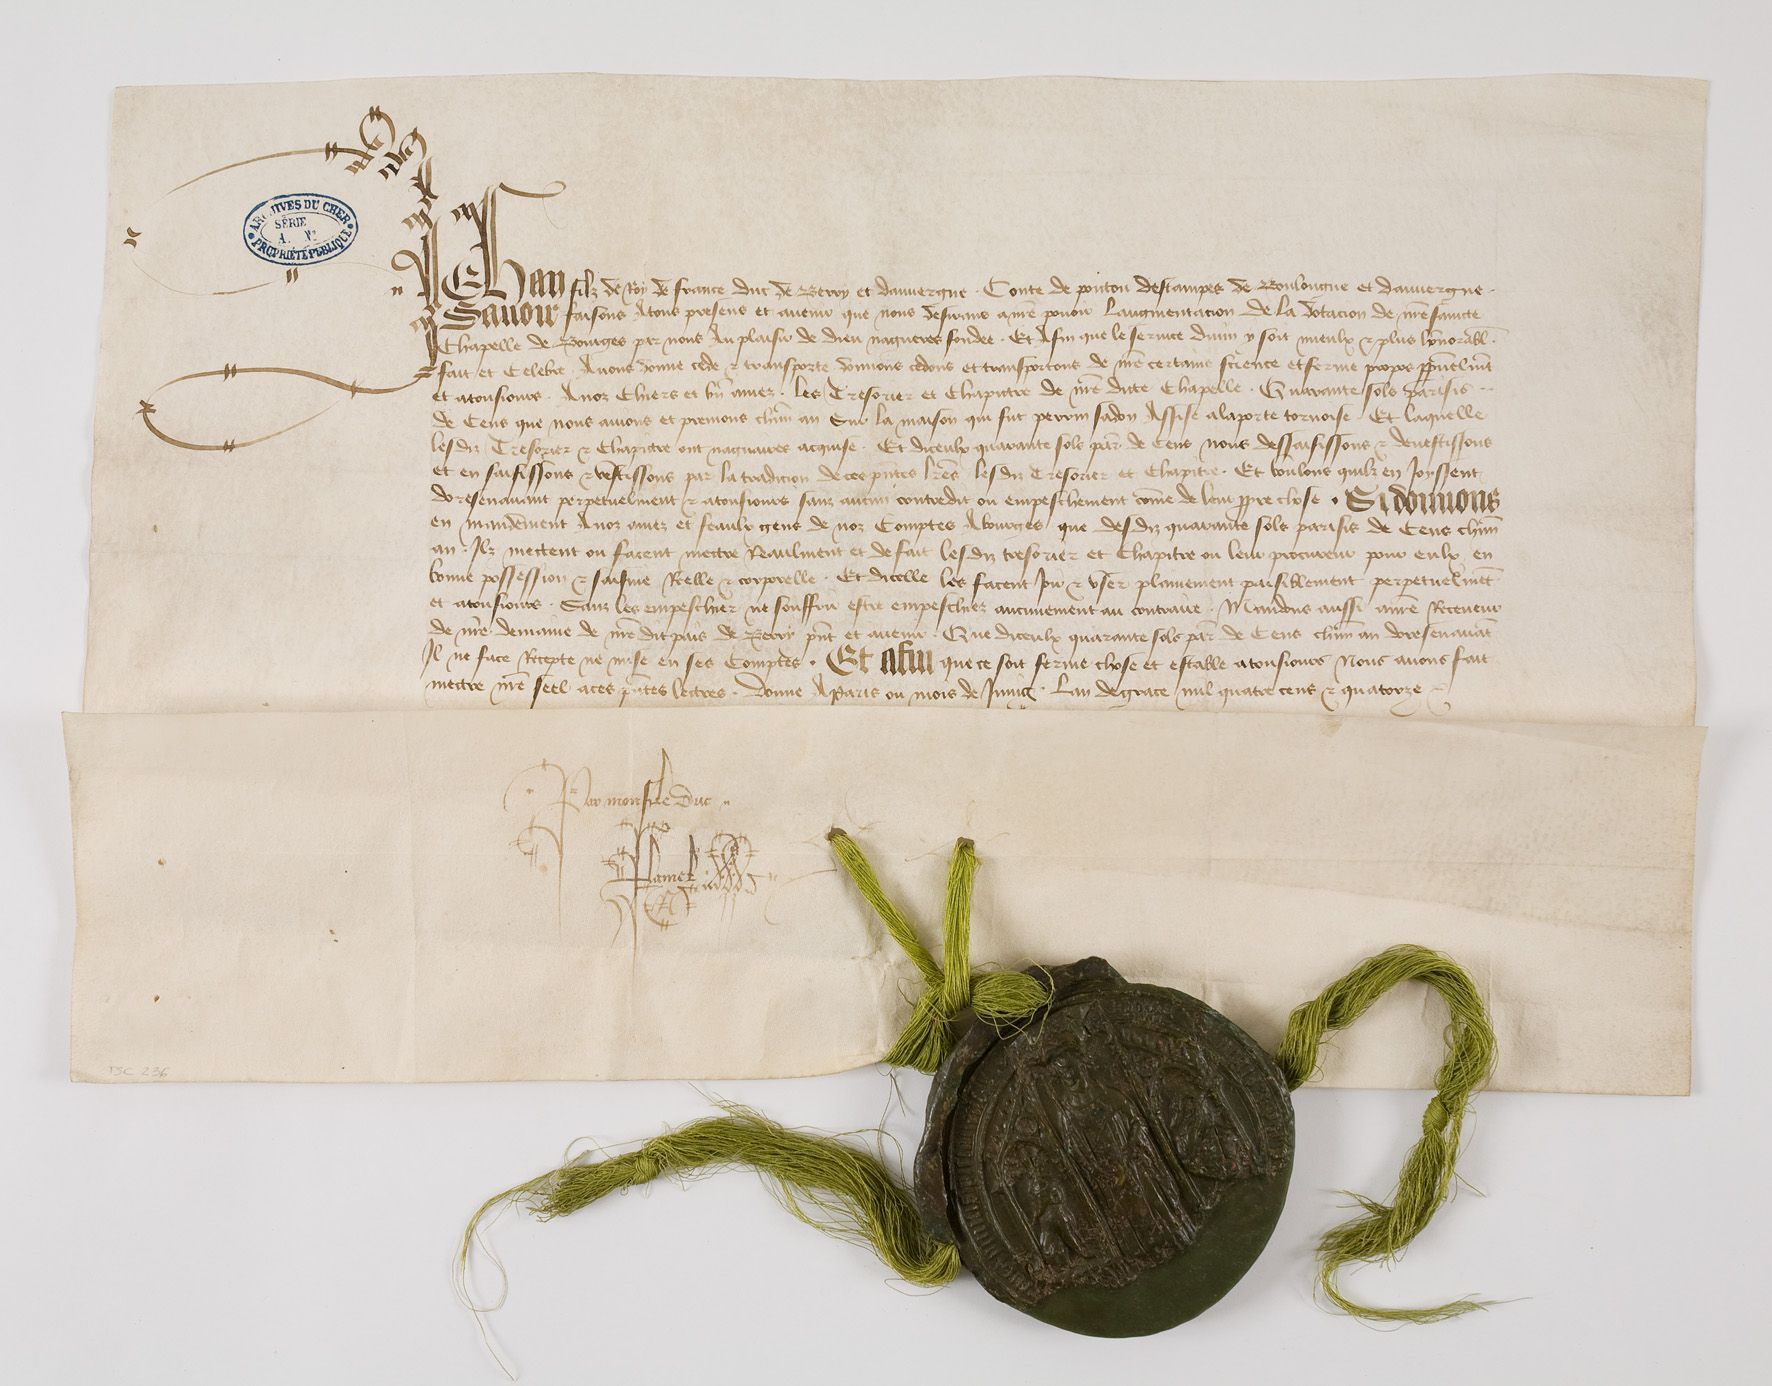 ARCHIVES DU CHER
SÉRIE
A. N°
PROPRIÉTÉ PUBLIQUE
Jehan filz de Roy de france duc de Berry et dauuergne . Conte de poitou destampes de Boulongne et dauuergne .
Sauoir faisons Atous presens et auenir que nous desirans a nre pouoir laugmentacion de la dotacion de nre saincte
Chapelle de Bourges par nous Au plaisir de dieu nagueres fondee . Et Afin que le seruice diuin y soit mieulx & plus honorabl .
fait et Celebre . Auons donne cede & transporte donnons cedons et transportons de nre certaine science et ferme propos ppetuelmt
et atousiours . Anoz Chiers et bn amez . les Tresorier et Chapittre de nre dicte Chapelle . Quarante sols parisis
de Cens que nous auions et prenions chun an Sur la maison qui fut perrin sadon Assise alaporte tornoise . Et laquelle
lesdiz Tresorier & Chapitre ont naguaires acquise . Et diceulx quarante sols par de Cens nous dessaisissons & deuestissons
et en saisissons & vestissons par la tradicion de ces pntes lres lesdiz Tresorier et Chapitre . Et voulons quilz en Joyssent
doresenauant perpetuelment & atousiours sanz aucun contredit ou empeschement come de leur ppre chose . Si donnons
en mandement Anoz amez et feaulx gens de noz Comptes Abourges que desdiz quarante sols parisis de Cens chun
an . Ilz mettent ou facent mettre Realment et de fait lesdiz tresorier et Chapitre ou leur procureur pour eulx en
bonne possession & saisine Reelle & corporelle . Et dicelle les facent Joir & vser plainement paisiblement perpetuelmet
et atousiours . Sanz les empeschier ne souffrir estre empeschiez aucunement au contraire . Mandons aussi anre Receueur
de nre demaine de nre dit pais de Berry pnt et auenir . Que diceulx quarante sols par de Cens chun an doresenauat
Il ne face Recepte ne mise en ses Comptes . Et afin que ce soit ferme chose et estable atousiours Nous auons fait
mettre nre seel aces pntes lectres . Donne Aparis ou mois de Juing . Lan de grace mil quatre cens & quatorze
Par monsr le Duc
Flamel